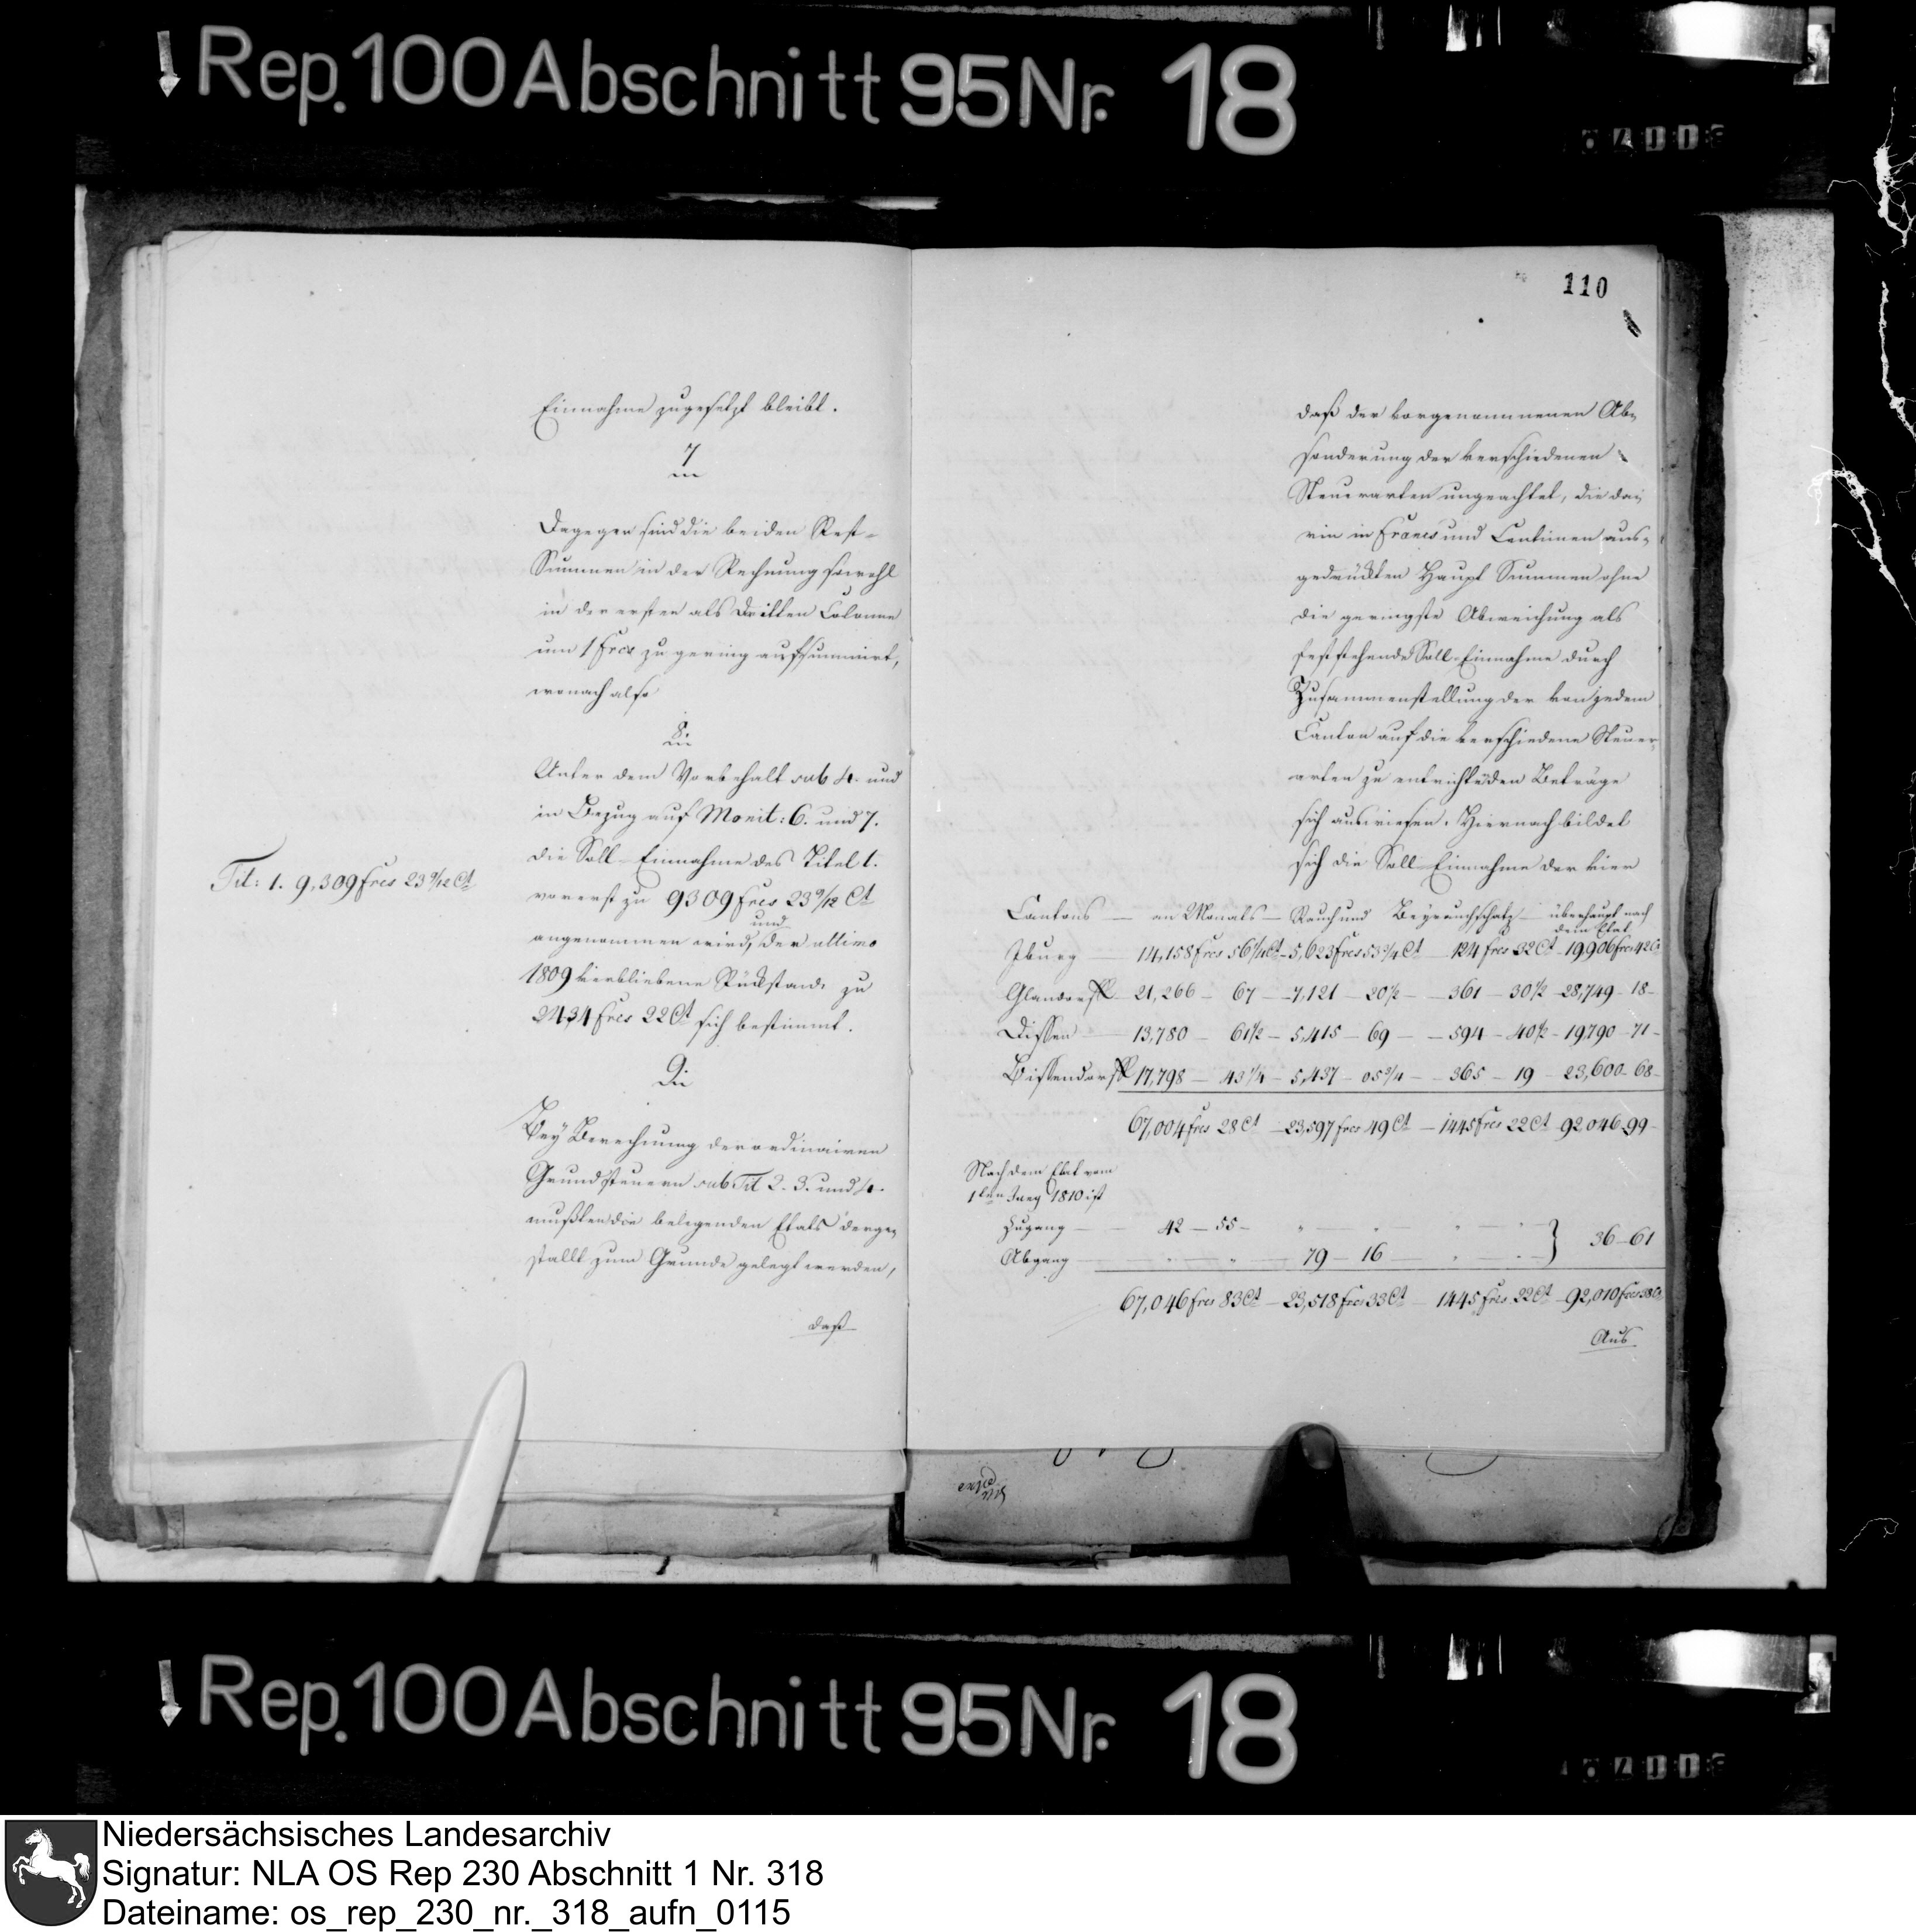 Rep. 100 Abschnitt 95 Nr. 18
Einnahme zugesetzt bleibt.
7
Dagegen sind die beiden Rest-
Summen in der Rechnung sowohl
in der ersten als dritten Colonne
um 1 frcs zu gering aufsummirt,
wonach also
8.
Unter dem Vorbehalt sub 4. und
in Bezug auf Monit: 6. und 7.
die Soll-Einnahme des Titel 1.
vorerst zu 9309 frcs 23 9/12 Ct
angenommen wird, und der ultimo
1809 verbliebene Rückstand zu
2434 frcs 22 Ct sich bestimmt.
Tit: 1. 9,309 frcs 23 9/12 Ct
9
Bey Berechnung der ordinairen
Grundsteuern sub Tit 2. 3. und 4.
mußten die belegenden Etats derge-
stallt zum Grunde gelegt werden,
daß
110
daß der vorgenommenen Ab-
sonderung der verschiedenen
Steuerarten ungeachtet, die da-
rin in Francs und Centimen aus-
gedrückten Haupt Summen ohne
die geringste Abweichung als
feststehende Soll-Einnahme durch
Zusammenstellung der von jedem
Canton auf die verschiedene Steuer-
arten zu entrichtenden Beträge
sich auswiesen. Hiernach bildet
sich die Soll-Einnahme der vier
Cantons — an Monats — Rauch und Beyrauchschatz — überhaupt nach dem Etat
Iburg — 14,158 frcs 56 1/4 Ct — 5,623 frcs 53 3/4 Ct — 124 frcs 32 Ct — 19,906 frcs 42 Ct
Glandorff 21,266 — 67 — 7,121 — 20 1/2 — 361 — 30 1/2 — 28,749 — 18 —
Dissen — 13,780 — 61 1/2 — 5,415 — 69 — 594 — 40 1/2 — 19,790 — 71 —
Bissendorff 17,798 — 43 1/4 — 5,437 — 05 3/4 — 365 — 19 — 23,600 — 68 —
67,004 frcs 28 Ct — 23,597 frcs 49 Ct — 1445 frcs 22 Ct — 92046 99 —
Nach dem Etat vom
1ten 1810 ist
Zugang — 42 — 55 —
Abgang — 79 — 16 — } 36 — 61
67,046 frcs 83 Ct — 23,518 frcs 33 Ct — 1445 frcs 22 Ct — 92,010 frcs 38 Ct
Aus
Rep. 100 Abschnitt 95 Nr. 18
Niedersächsisches Landesarchiv
Signatur: NLA OS Rep 230 Abschnitt 1 Nr. 318
Dateiname: os_rep_230_nr._318_aufn_0115